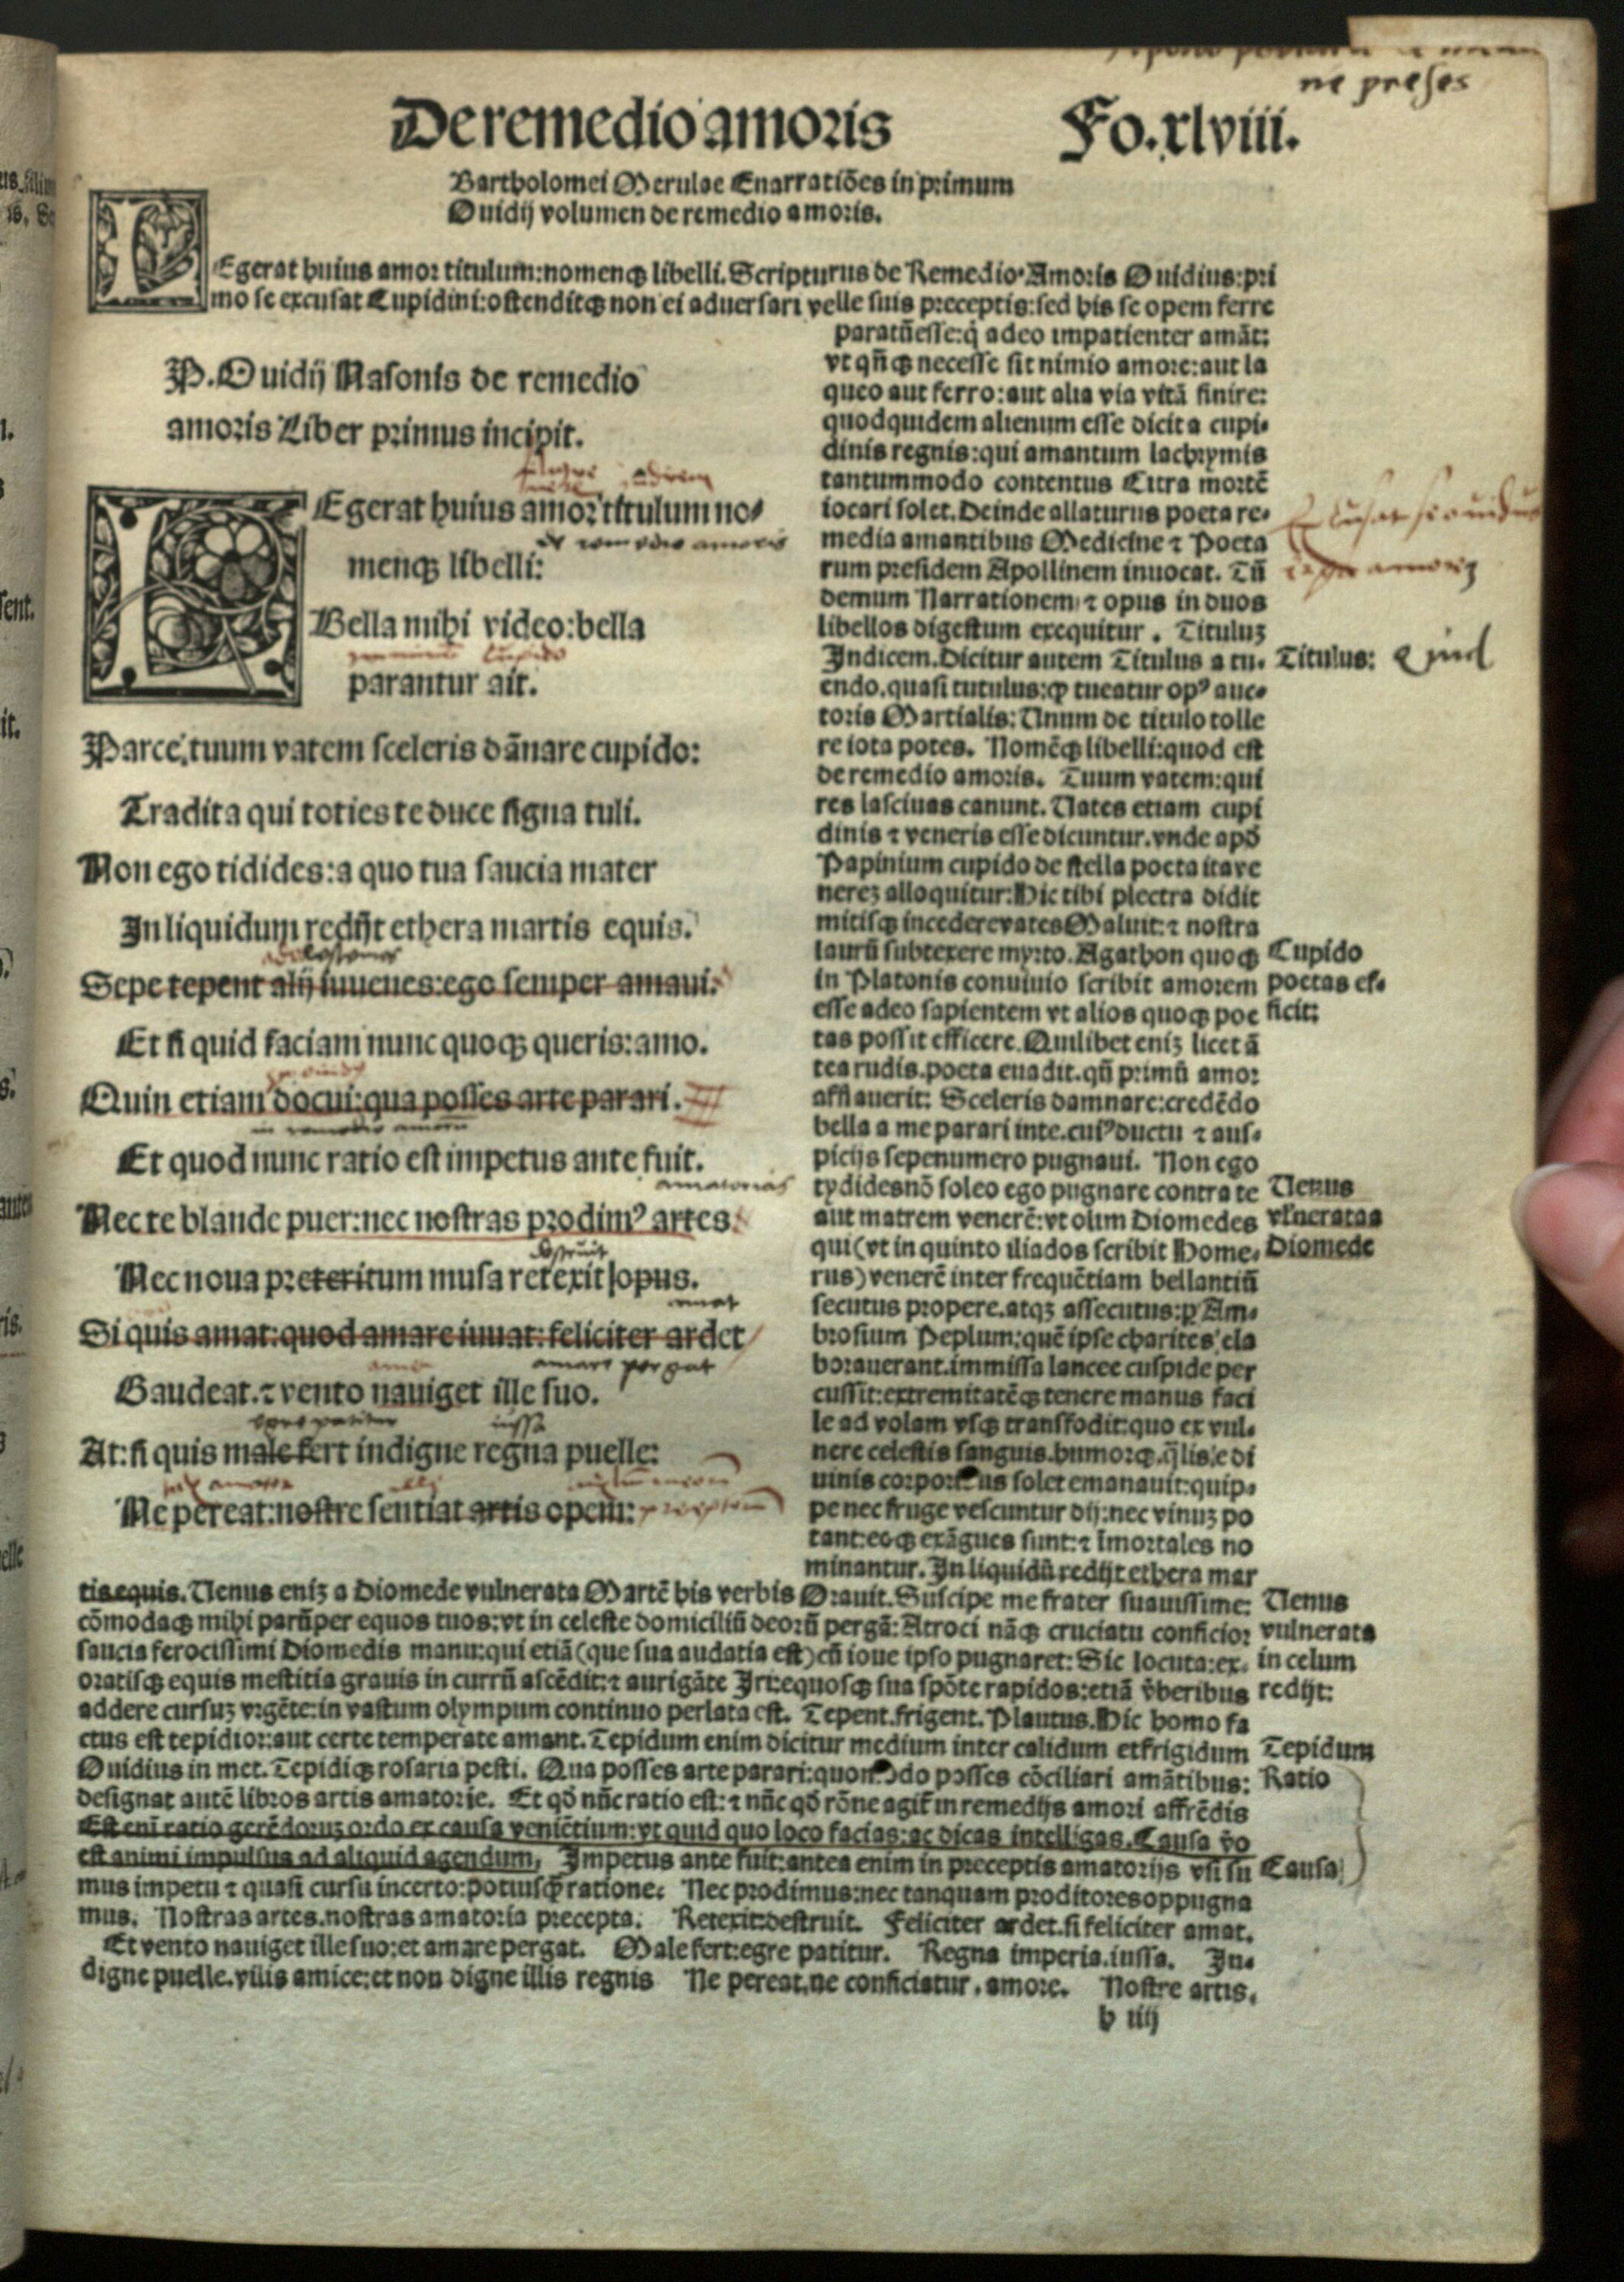 ne preses
De remedio amoris Fo. xlviii.
Bartholomei Merulae Enarratiões in primum
Ouidij volumen de remedio amoris.
LEgerat huius amor titulum: nomenqꝫ libelli. Scripturus de Remedio Amoris Ouidius: pri
mo se excusat Cupidini: ostenditqꝫ non ei aduersari velle suis preceptis: sed his se opem ferre
P. Ouidij Nasonis de remedio
amoris Liber primus incipit.
LEgerat huius amor titulum no⸗
menqꝫ libelli:
Bella mihi video: bella
parantur ait.
Parce, tuum vatem sceleris dãnare cupido:
Tradita qui toties te duce signa tuli.
Non ego tidides: a quo tua saucia mater
In liquidum redijt ethera martis equis.
Sepe tepent alij iuuenes: ego semper amaui:
Et si quid faciam nunc quoqꝫ queris: amo.
Quin etiam docui: qua posses arte parari.
Et quod nunc ratio est impetus ante fuit.
amatorias
Nec te blande puer: nec nostras prodimꝰ artes.
destruit
Nec noua preteritum musa retexit opus.
amat
Si quis amat: quod amare iuuat: feliciter ardet
amare pergat
Gaudeat. ⁊ vento nauiget ille suo.
iussa
At: si quis male fert indigne regna puelle:
Ne pereat: nostre sentiat artis opem:
paratũ esse: q̃ adeo impatienter amãt:
vt qñqꝫ necesse sit nimio amore: aut la
queo aut ferro: aut alia via vitã finire:
quod quidem alienum esse dicit a cupi⸗
dinis regnis: qui amantum lachrymis
tantummodo contentus Citra mortẽ
iocari solet. Deinde allaturus poeta re⸗
media amantibus Medicine ⁊ Poeta
rum presidem Apollinem inuocat. Tũ
demum Narrationem: ⁊ opus in duos
libellos digestum exequitur. Tituluꝫ
Indicem. Dicitur autem Titulus a tu⸗ Titulus:
endo, quasi tutulus: ꝙ tueatur opꝰ auc⸗
toris Martialis: Unum de titulo tolle
re iota potes. Nomẽqꝫ libelli: quod est
de remedio amoris. Tuum vatem: qui
res lasciuas canunt. Uates etiam cupi
dinis ⁊ veneris esse dicuntur. vnde apõ
Papinium cupido de stella poeta ita ve
nereꝫ alloquitur: Hic tibi plectra didit
mitisqꝫ incedere vates Maluit: ⁊ nostra
laurũ subtexere myrto. Agathon quoqꝫ Cupido
in Platonis conuiuio scribit amorem poetas ef⸗
esse adeo sapientem vt alios quoqꝫ poe ficit:
tas possit efficere. Quilibet eniꝫ licet ã
tea rudis. poeta euadit. qñ primũ amor
afflauerit: Sceleris damnare: credẽdo
bella a me parari in te. cuiꝰ ductu ⁊ aus⸗
picijs sepenumero pugnaui. Non ego
tydides nõ soleo ego pugnare contra te Uenus
aut matrem venerẽ: vt olim Diomedes vulneratas
qui (vt in quinto iliados scribit Home⸗ Diomede
rus) venerẽ inter frequẽtiam bellantiũ
secutus propere. atqꝫ assecutus: ꝑ Am⸗
brosium Peplum: quẽ ipse charites ela
borauerant. immissa lancee cuspide per
cussit: extremitatẽqꝫ tenere manus faci
le ad volam vsqꝫ transfodit: quo ex vul⸗
nere celestis sanguis. humorqꝫ. q̃lis e di
uinis corporibus solet emanauit: quip⸗
pe nec fruge vescuntur dij: nec vinuꝫ po
tant: eoqꝫ exãgues sunt: ⁊ ĩmortales no
minantur. In liquidũ redijt ethera mar
tis equis. Uenus eniꝫ a Diomede vulnerata Martẽ his verbis Orauit. Suscipe me frater suauissime: Uenus
cõmodaqꝫ mihi parũper equos tuos: vt in celeste domiciliũ deorũ pergã: Atroci nãqꝫ cruciatu conficior vulnerata
saucia ferocissimi Diomedis manu: qui etiã (que sua audatia est) cũ ioue ipso pugnaret: Sic locuta: ex⸗ in celum
oratisqꝫ equis mestitia grauis in currũ ascẽdit: ⁊ aurigãte Iri: equosqꝫ sua spõte rapidos: etiã v̑beribus redijt:
addere cursuꝫ vrgẽte: in vastum olympum continuo perlata est. Tepent. frigent. Plautus. Hic homo fa
ctus est tepidior: aut certe temperate amant. Tepidum enim dicitur medium inter calidum et frigidum Tepidum
Ouidius in met. Tepidiqꝫ rosaria pesti. Qua posses arte parari: quomodo posses cõciliari amãtibus: Ratio
designat autẽ libros artis amatorie. Et qõ nũc ratio est: ⁊ nũc qõ rõne agit̃ in remedijs amori affrẽdis
Est eni ratio gerẽdoruꝫ ordo ex causa veniẽtium: vt quid quo loco facias: ac dicas intelligas. Causa v̑o
est animi impulsus ad aliquid agendum, Impetus ante fuit: antea enim in preceptis amatorijs vsi su Causa
mus impetu ⁊ quasi cursu incerto: potiusꝙ̃ ratione. Nec prodimus: nec tanquam proditores oppugna
mus. Nostras artes. nostras amatoria precepta. Retexit: destruit. Feliciter ardet. si feliciter amat.
Et vento nauiget ille suo: et amare pergat. Male fert: egre patitur. Regna imperia. iussa. In⸗
digne puelle. vilis amice: et non digne illis regnis Ne pereat. ne conficiatur. amore. Nostre artis.
b iiij